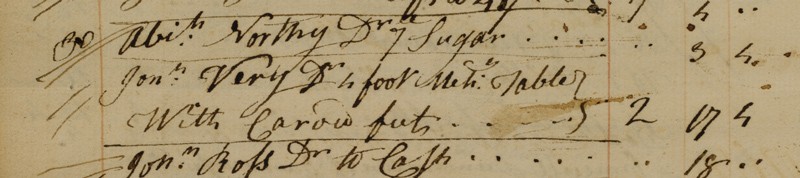 30 Abi.h Northy Dr 7 Sugar . . . . .. 3 4 .
Jon.n Very Dr 4 foot Meh.y Table
With Carv'd feet . . . . 2 17 4
Jon.n Ross Dr to Cash . . . . . .. 18 ..